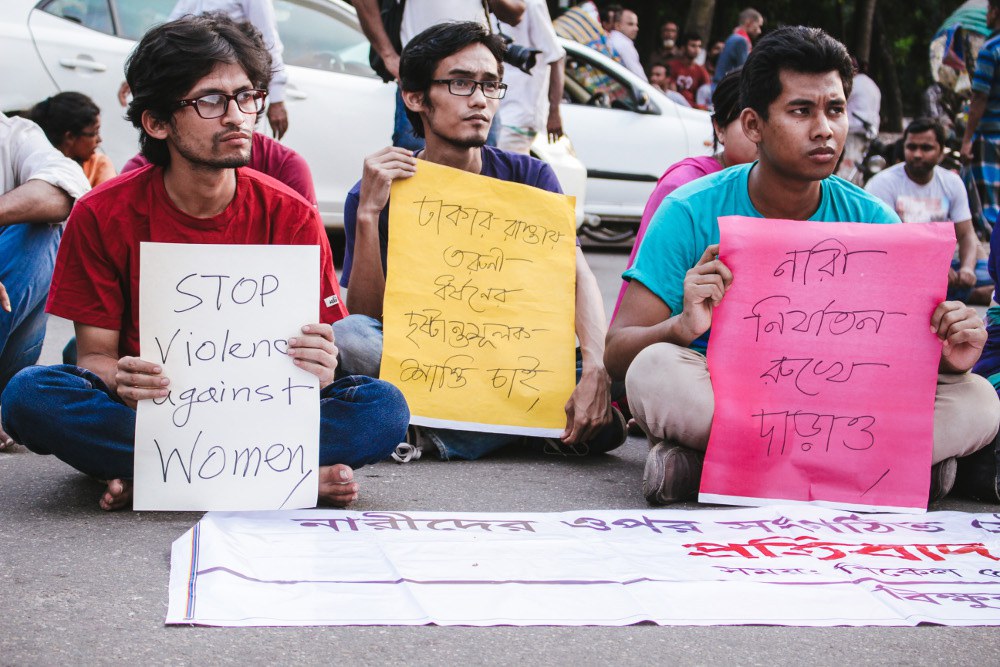 STOP
Violenc
against
Women,
ঢাকার রাস্তায়
তরুনী
ধর্ষনের
দৃষ্টান্তমূলক
শাস্তি চাই,
নারী
নির্যাতন
রুখে
দাড়াও,
নারীদের ওপর সংগঠিত
প্রতিবাদ
সময়: বিকেল
বিক্ষু